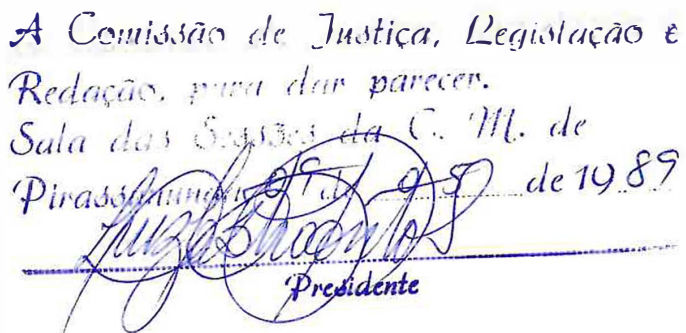 A Comissão de Justiça, Legislação e
Redação, para dar parecer.
Sala das Sessões da C. M. de
Pirassununga, de 05 de 1989
Presidente